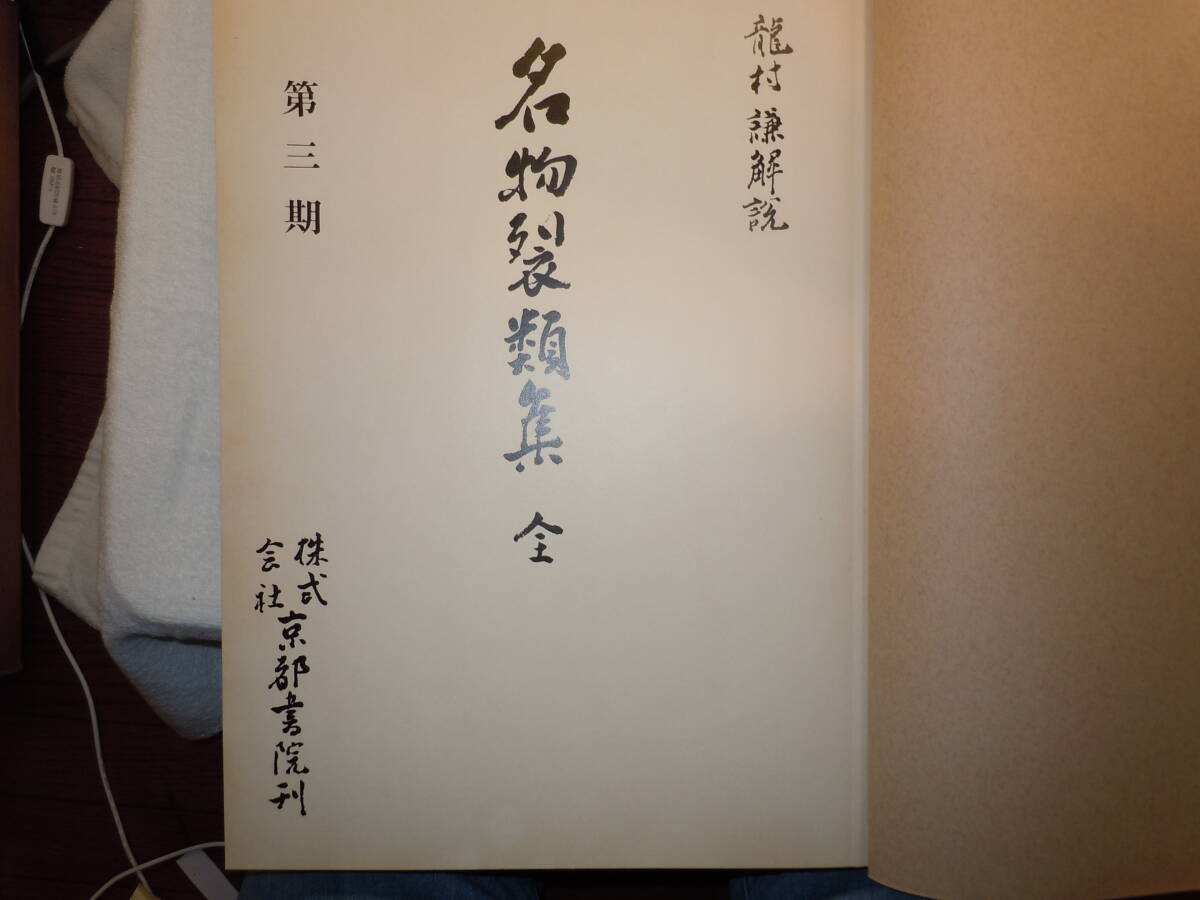 龍村謙解説
名物裂類集 全
第三期
株式会社京都書院刊